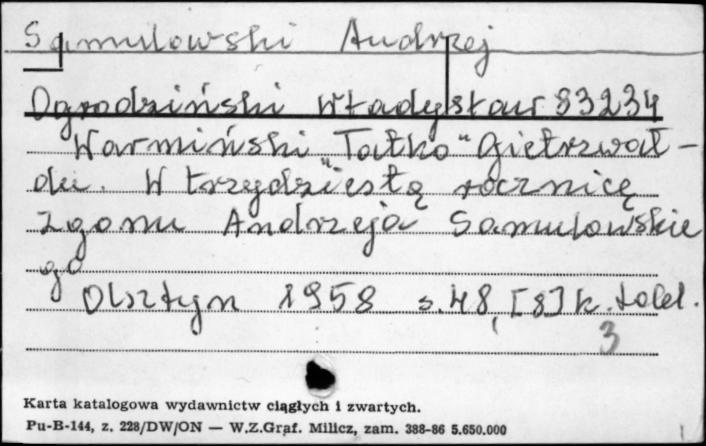 Samulowski Andrzej
Ogrodziński Władysław 83234
Warmiński „Tatko" Gietrzwał-
du. W trzydziestą rocznicę
zgonu Andrzeja Samulowskie
go
Olsztyn 1958 s. 48, [8] k. tabl.
3
Karta katalogowa wydawnictw ciągłych i zwartych.
Pu-B-144, z. 228/DW/ON — W.Z.Graf. Milicz, zam. 388-86 5.650.000